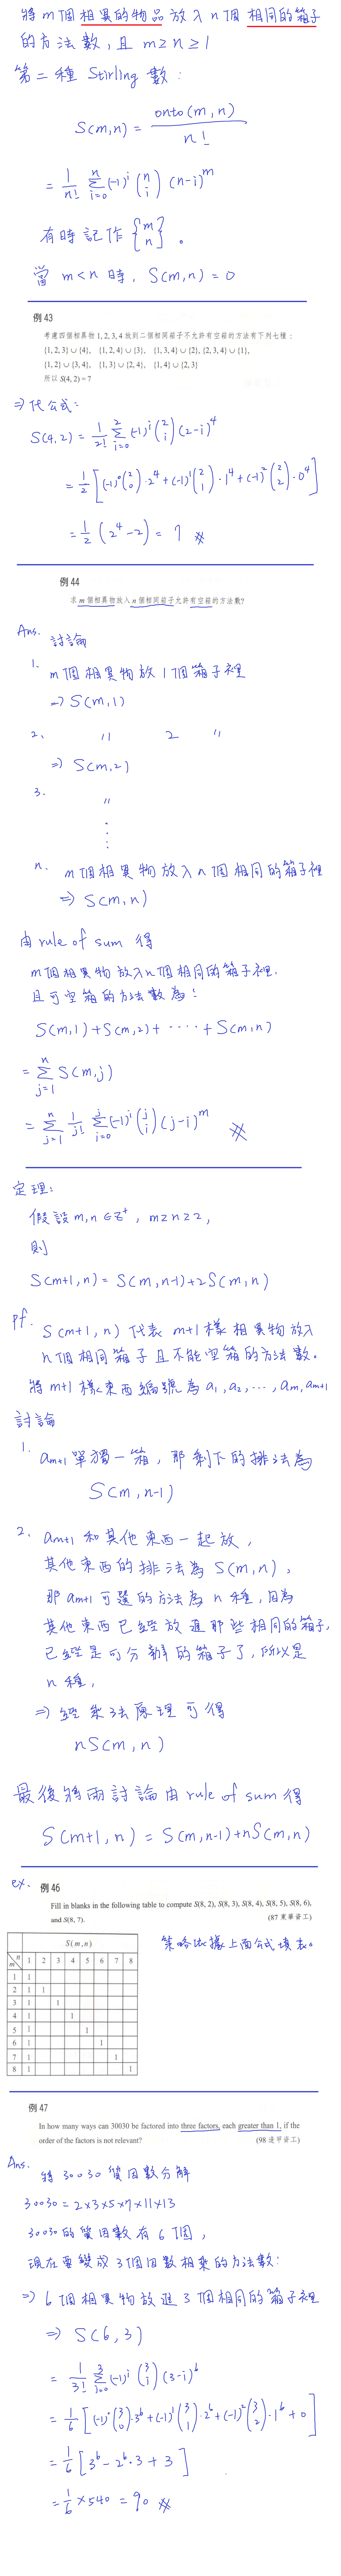 將 m 個相異的物品放入 n 個 相同的箱子
的方法數,且 m≥n≥1
第二種 Stirling 數:
S(m,n) = onto(m,n) / n!
= 1/n! Σ_{i=0}^{n} (-1)^i (n i) (n-i)^m
有時記作 {m n}。
當 m<n 時, S(m,n) = 0
例 43
考慮四個相異物 1, 2, 3, 4 放到二個相同箱子不允許有空箱的方法有下列七種:
{1, 2, 3} ∪ {4}, {1, 2, 4} ∪ {3}, {1, 3, 4} ∪ {2}, {2, 3, 4} ∪ {1},
{1, 2} ∪ {3, 4}, {1, 3} ∪ {2, 4}, {1, 4} ∪ {2, 3}
所以 S(4, 2) = 7
⇒ 代公式:
S(4,2) = 1/2! Σ_{i=0}^{2} (-1)^i (2 i) (2-i)^4
= 1/2 [(-1)^0 (2 0)·2^4 + (-1)^1 (2 1)·1^4 + (-1)^2 (2 2)·0^4]
= 1/2 (2^4 - 2) = 7 ※
例 44
求 m 個相異物放入 n 個相同箱子允許有空箱的方法數?
Ans. 討論
1. m 個相異物放 1 個箱子裡
⇒ S(m,1)
2、 〃 2 〃
⇒ S(m,2)
3. 〃
⋮
n. m 個相異物放入 n 個相同的箱子裡
⇒ S(m,n)
由 rule of sum 得
m個相異物放入n個相同的箱子裡,
且可空箱的方法數為:
S(m,1)+S(m,2)+ ····· + S(m,n)
= Σ_{j=1}^{n} S(m,j)
= Σ_{j=1}^{n} 1/j! Σ_{i=0}^{j} (-1)^i (j i) (j-i)^m ※
定理:
假設 m,n ∈ Z^+, m≥n≥2,
則
S(m+1,n) = S(m,n-1)+2S(m,n)
pf. S(m+1,n) 代表 m+1 樣相異物放入
n 個相同箱子且不能空箱的方法數。
將 m+1 樣東西編號為 a_1, a_2, ···, a_m, a_{m+1}
討論
1. a_{m+1} 單獨一箱,那剩下的排法為
S(m,n-1)
2、 a_{m+1} 和其他東西一起放,
其他東西的排法為 S(m,n),
那 a_{m+1} 可選的方法為 n 種,因為
其他東西已經放進那些相同的箱子,
已經是可分辨的箱子了,所以是
n 種,
⇒ 經乘法原理可得
nS(m,n)
最後將兩討論由 rule of sum 得
S(m+1,n) = S(m,n-1)+nS(m,n)
ex. 例 46
Fill in blanks in the following table to compute S(8, 2), S(8, 3), S(8, 4), S(8, 5), S(8, 6),
and S(8, 7). (87 東華資工)
策略依據上面公式填表。
S(m, n)
m n 1 2 3 4 5 6 7 8
1 1
2 1 1
3 1 1
4 1 1
5 1 1
6 1 1
7 1 1
8 1 1
例 47
In how many ways can 30030 be factored into three factors, each greater than 1, if the
order of the factors is not relevant? (98 逢甲資工)
Ans. 將 30030 質因數分解
30030 = 2×3×5×7×11×13
30030 的質因數有 6 個,
現在要變成 3 個因數相乘的方法數:
⇒ 6 個相異物放進 3 個相同的箱子裡
⇒ S(6,3)
= 1/3! Σ_{i=0}^{3} (-1)^i (3 i) (3-i)^6
= 1/6 [(-1)^0 (3 0)·3^6 + (-1)^1 (3 1)·2^6 + (-1)^2 (3 2)·1^6 + 0]
= 1/6 [3^6 - 2^6·3 + 3]
= 1/6 × 540 = 90 ※